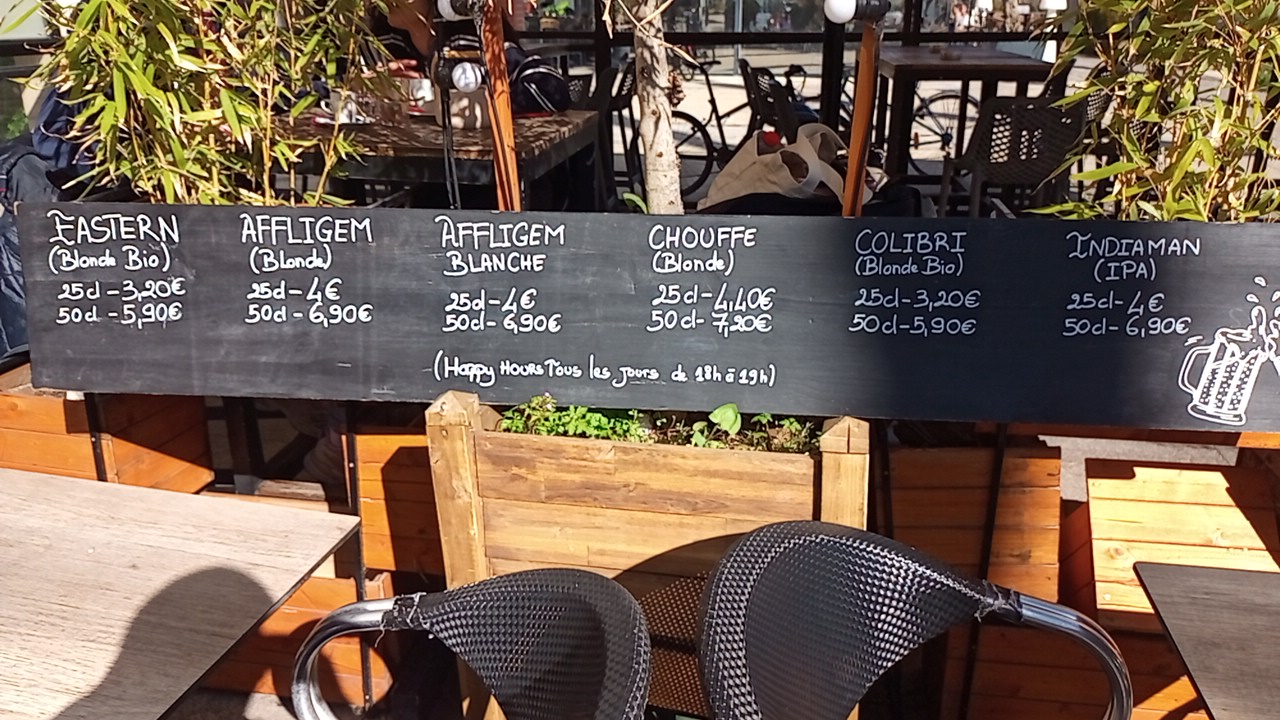 EASTERN
(Blonde Bio)
25cl - 3,20€
50cl - 5,90€
AFFLIGEM
(Blonde)
25cl - 4€
50cl - 6,90€
AFFLIGEM
BLANCHE
25cl - 4€
50cl - 6,90€
CHOUFFE
(Blonde)
25cl - 4,40€
50cl - 7,20€
COLIBRI
(Blonde Bio)
25cl - 3,20€
50cl - 5,90€
INDIAMAN
(IPA)
25cl - 4€
50cl - 6,90€
(Happy HOURS Tous les jours de 18h à 19h)